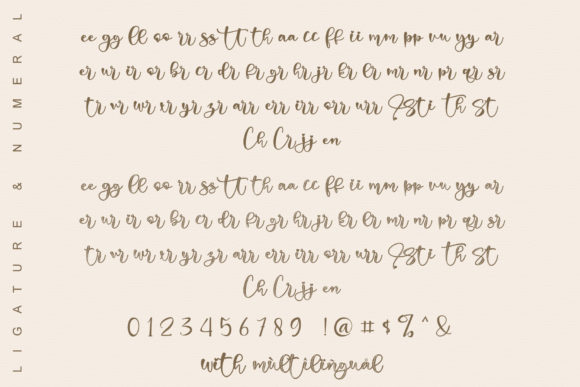 LIGATURE & NUMERAL
ee gg ll oo rr ss tt th aa cc ff ii mm pp vu yy ar
er ur ir or br cr dr fr gr hr jr kr lr mr nr pr qr sr
tr vr wr xr yr zr arr err irr orr urr Sti Th St
Ch Cr jj en
ee gg ll oo rr ss tt th aa cc ff ii mm pp vu yy ar
er ur ir or br cr dr fr gr hr jr kr lr mr nr pr qr sr
tr vr wr xr yr zr arr err irr orr urr Sti Th St
Ch Cr jj en
0 1 2 3 4 5 6 7 8 9 ! @ # $ % ^ &
with mùltilingùál